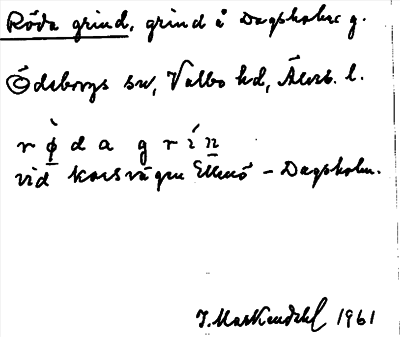 Röda grind, grind å Dagsholms g.
Ödsborgs sn, Valbo hd, Älvsb. l.
r ø̀ d a g r í n
vid korsvägen Ellenö – Dagsholm.
J. Markendahl 1961